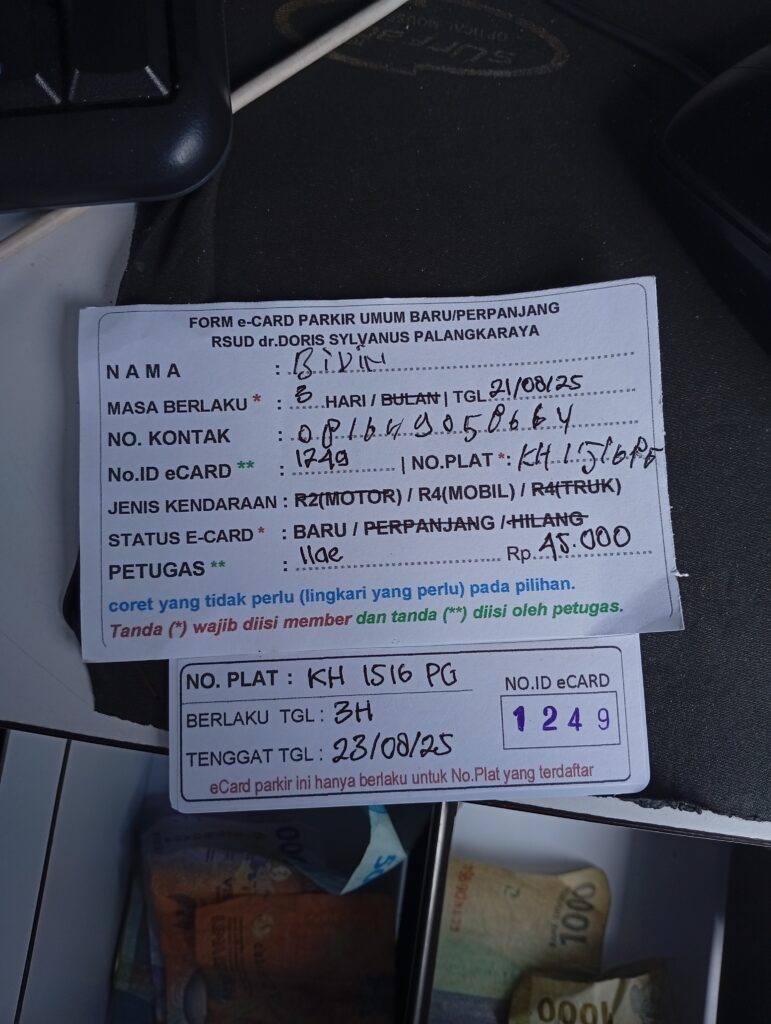 OPTICAL MOUSE
FORM e-CARD PARKIR UMUM BARU/PERPANJANG
RSUD dr.DORIS SYLVANUS PALANGKARAYA
NAMA : BIVIN
MASA BERLAKU * : 3 HARI / BULAN | TGL 21/08/25
NO. KONTAK : 081649058664
No.ID eCARD ** : 1249 | NO.PLAT *: KH 1516 PG
JENIS KENDARAAN : R2(MOTOR) / R4(MOBIL) / R4(TRUK)
STATUS E-CARD * : BARU / PERPANJANG / HILANG
PETUGAS ** : Rp 45.000
coret yang tidak perlu (lingkari yang perlu) pada pilihan.
Tanda (*) wajib diisi member dan tanda (**) diisi oleh petugas.
NO. PLAT : KH 1516 PG
NO.ID eCARD
BERLAKU TGL : 3H
1249
TENGGAT TGL : 23/08/25
eCard parkir ini hanya berlaku untuk No.Plat yang terdaftar
1000
1000